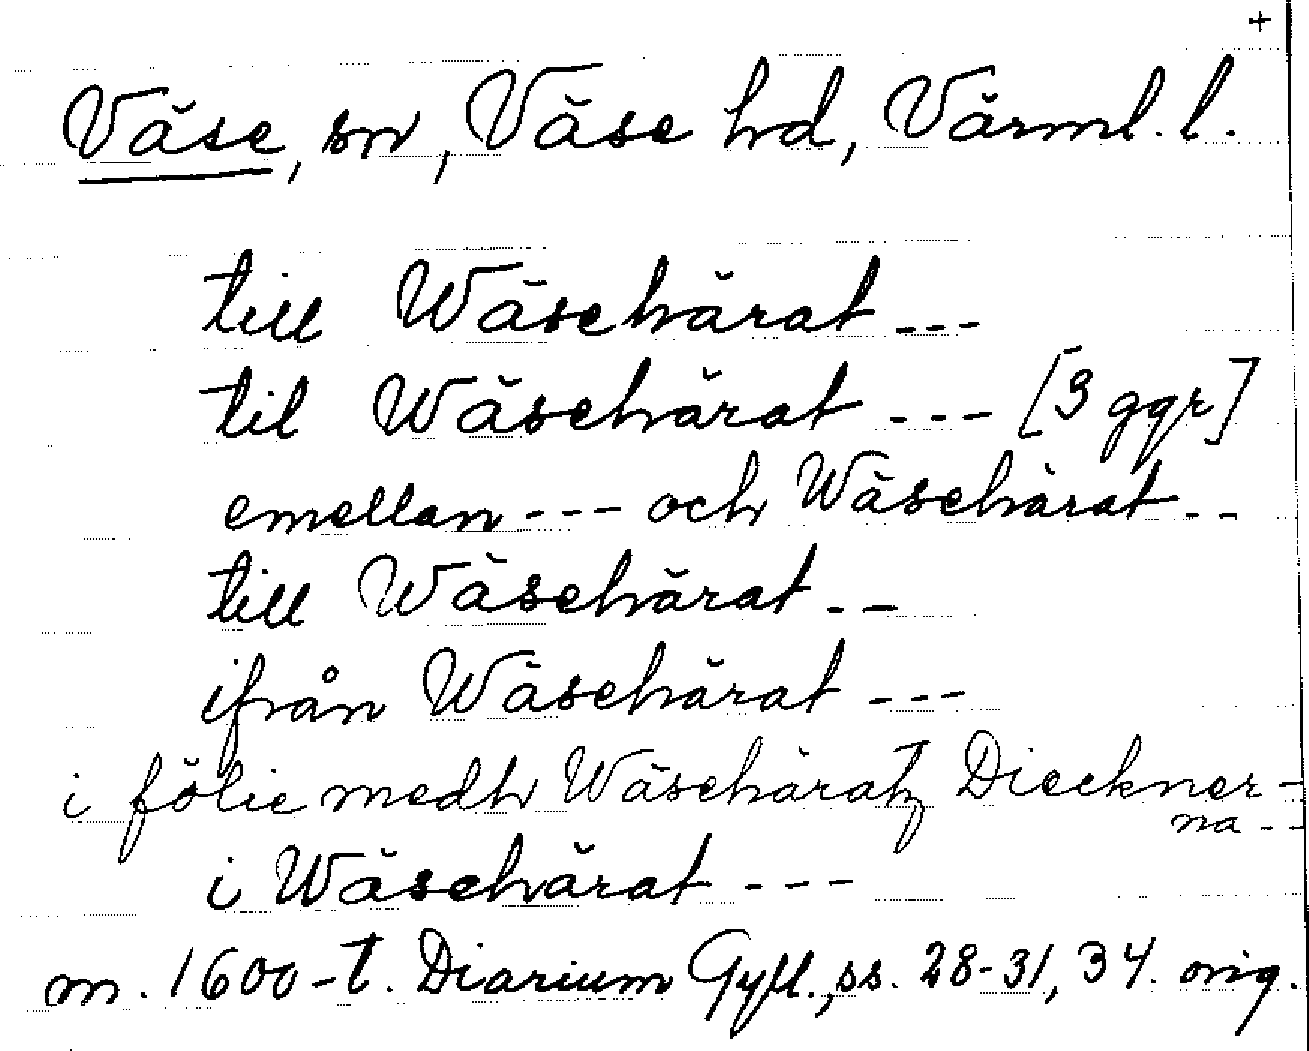 +
Väse, sn, Väse hd, Värml. l.
till Wäsehärat ---
til Wäsehärat --- [3 ggr]
emellan --- och Wäsehärat --
till Wäsehärat --
ifrån Wäsehärat ---
i fölie medh Wäsehäratz Dieckner-
na --
i Wäsehärat ---
m. 1600-t. Diarium Gyll., ss. 28-31, 34. orig.